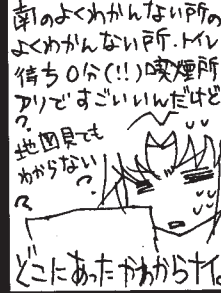 南のよくわかんない所の
よくわかんない所.トイレ
待ち0分(!!)喫煙所
アリですごいいんだけど
?
地図見ても
わからない
?
?
どこにあったかわからナイ。